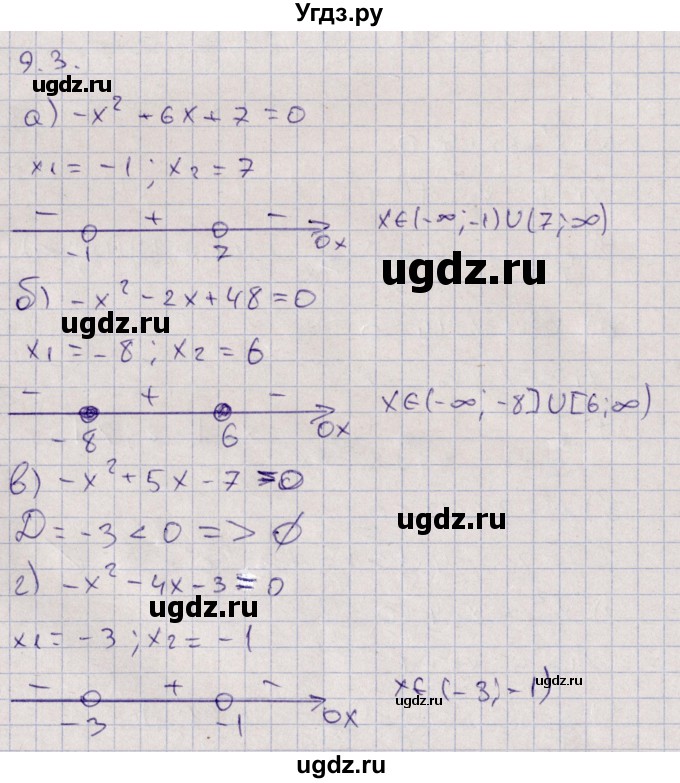 Угдз.ру
9.3.
ugdz.ru
а) -x² + 6x + 7 = 0
x1 = -1 ; x2 = 7
- + -
-1 7 0x
x∈(-∞; -1)∪(7; ∞)
ugdz.ru
б) -x² - 2x + 48 = 0
ugdz.ru
x1 = -8 ; x2 = 6
- + -
-8 6 0x
x∈(-∞; -8]∪[6; ∞)
в) -x² + 5x - 7 = 0
ugdz.ru
D = -3 < 0 => ∅
г) -x² - 4x - 3 = 0
ugdz.ru
x1 = -3 ; x2 = -1
- + -
-3 -1 0x
x∈(-3; -1)
ugdz.ru
ugdz.ru
ugdz.ru